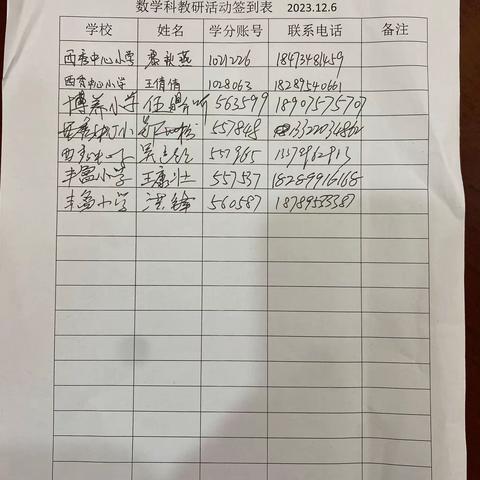 数学科教研活动签到表 2023.12.6
学校 姓名 学分账号 联系电话 备注
西秀中心小学 秋燕 1021226 18473481459
西秀中心小学 王倩倩 1028063 18289540661
博养小学 任 563599 18907575707
557848
西秀 吴 557965 13579962913
丰盈小学 王康壮 557537 18289916168
丰盈小学 洪锋 560587 18789553387